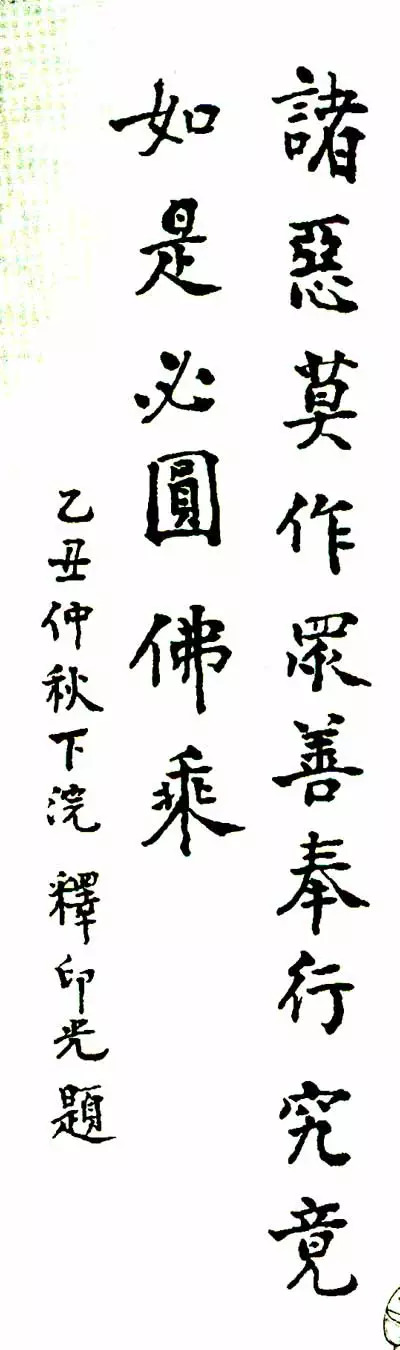 諸惡莫作眾善奉行究竟
如是必圓佛乘
乙丑仲秋下浣 釋印光題